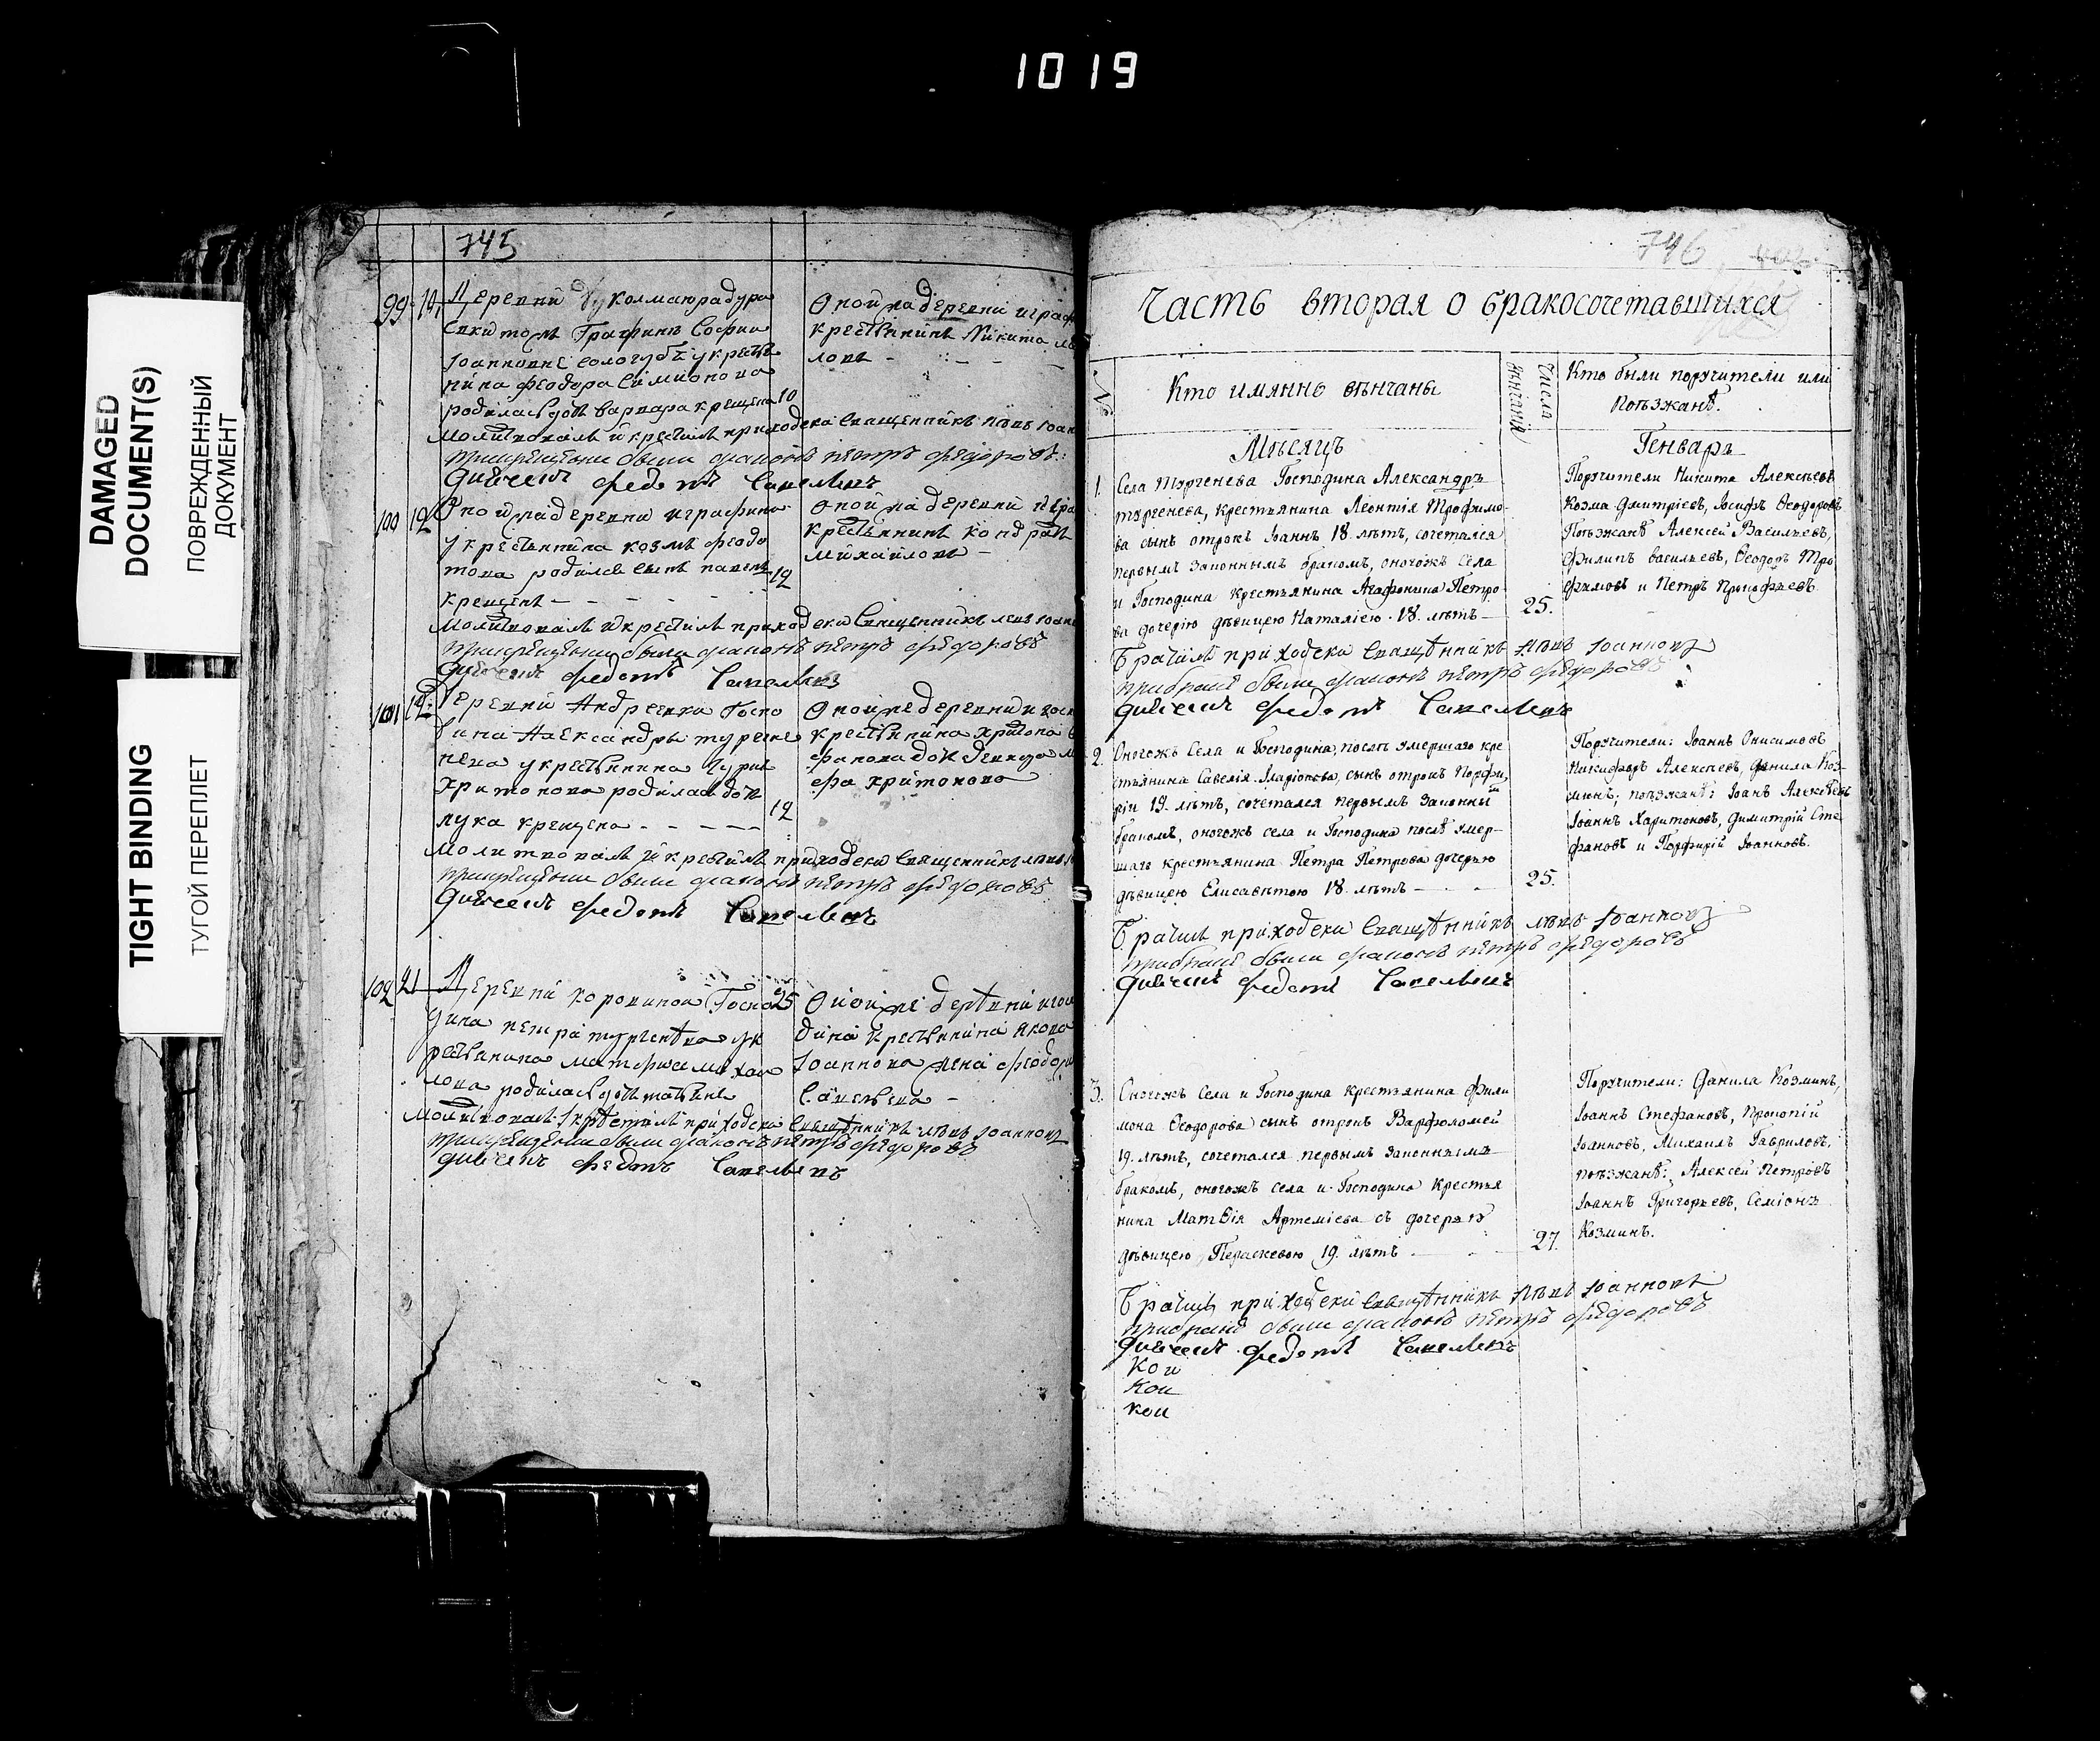 1019
DAMAGED
DOCUMENT(S)
ПОВРЕЖДЕННЫЙ
ДОКУМЕНТ
TIGHT BINDING
ТУГОЙ ПЕРЕПЛЕТ
745
99
Деревни
Графини Софии
Iоанновне сологубъ укресть
нина феодора симионова
родилась дочь варвара крещена 10
молитвовалъ и крестилъ приходски священникъ левъ Iоан
прикрещении были диаконъ петръ федоровъ
Дьячекъ федотъ Савельевъ
Оной же деревни и граф
крестьянинъ Никита
100 12 Оной же деревни и графини
укрестьянина козмы федо
това родился сынъ павелъ 12
крещенъ
молитвовалъ и крестилъ приходски священникъ левъ Iоанн
прикрещении были диаконъ петръ федоровъ
Дьячекъ федотъ Савельевъ
оной же деревни и гра
крестьянинъ кондратъ
михайловъ
101 12 Деревни Андреевки Госпо
дина Александры турге
нева укрестьянина
Харитонова родилась дочь
крещена 12
молитвовалъ и крестилъ приходски священникъ левъ
прикрещении были диаконъ петръ федоровъ
Дьячекъ федотъ Савельевъ
Оной же деревни и госп
крестьянина
102 21 Деревни коровиной Госпо 25
дина петра тургенева ук
рестьянина
родилась дочь
молитвовалъ и крестилъ приходски священникъ левъ Iоанновъ
прикрещении были диаконъ петръ федоровъ
Дьячекъ федотъ Савельевъ
Оной же деревни и госпо
дина крестьянина якова
Iоаннова жена феодора
Савельева
746
Часть вторая о бракосочетавшихся
№
Кто имянно вѣнчаны
Числа
вѣнчанія
Кто были поручители или
Поѣзжанѣ.
Мѣсяцъ
Генварь
1. Села Тургенева Господина Александръ
тургенева, крестьянина Леонтія Трофимо-
ва сынъ отрокъ Iоаннъ 18. лѣтъ, сочетался
первымъ законнымъ бракомъ, оногожъ Села
и Господина крестьянина Агафонина Петро
ва дочерію дѣвицею Наталіею 18. лѣтъ 25.
Поручители Никита Алексѣевъ
Козма Дмитріевъ, Iосифъ Ѳеодоровъ
Поѣзжанѣ Алексѣй Васильевъ,
Филипъ Васильевъ, Ѳеодоръ Тро
фимовъ и Петръ Прокофьевъ
Брачилъ приходски священникъ левъ Iоанновъ
прибраке были диаконъ петръ федоровъ
Дьячекъ федотъ Савельевъ
2. Оногожъ Села и Господина, послѣ умершаго кре
стьянина Савелія Ларіонова, сынъ отрокъ Порфи
рій 19. лѣтъ, сочетался первымъ законны
бракомъ, оногожъ села и Господина послѣ умер-
шаго крестьянина Петра Петрова дочерью
дѣвицею Елисаветою 18. лѣтъ 25.
Поручители: Iоаннъ Онисимовъ
Никифоръ Алексѣевъ, Данила Коз-
минъ; поѣзжанѣ: Iоанъ Алексѣевъ
Iоаннъ Харитоновъ, Димитрій Сте
фановъ и Порфирій Iоанновъ.
Брачилъ приходски священникъ левъ Iоанновъ
прибраке были диаконъ петръ федоровъ
Дьячекъ федотъ Савельевъ
3. Оногожъ Села и Господина крестьянина Фили
мона Ѳеодорова сынъ отрокъ Варфоломей
19. лѣтъ, сочетался первымъ законнымъ
бракомъ, оногожъ села и Господина крестья
нина Матвія Артеміева съ дочерью
дѣвицею Пераскевою 19. лѣтъ 27.
Поручители: Данила Козминъ,
Iоаннъ Стефановъ, Прокопій
Iоанновъ, Михаилъ Гавриловъ,
поѣзжанѣ: Алексѣй Петровъ
Iоаннъ Григорьевъ, Семіонъ
Козминъ.
Брачилъ приходски священникъ левъ Iоанновъ
прибраке были диаконъ петръ федоровъ
Дьячекъ федотъ Савельевъ
Кои
Кои
кои